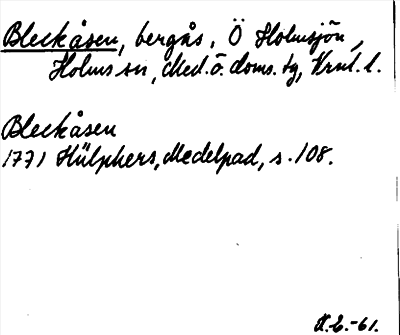 Bleckåsen, bergås, Ö Holmsjön,
Holms sn, Med. ö. doms. tg, Vrnl. l.
Bleckåsen
1771 Hülphers, Medelpad, s. 108.
K.E.-61.